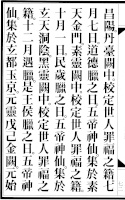 昌陽丹臺闕中校定世人罪福之籍七
月七日道德臘之日五帝神仙集於素
天金門素靈闕中校定世人罪福之籍
十月一日民歲臘之日五帝神仙集於
玄天洞陰黑靈闕中校定世人罪福之
籍十二月遇臘是王侯臘之日五帝神
仙集於玄都玉京元靈戊己金闕元始